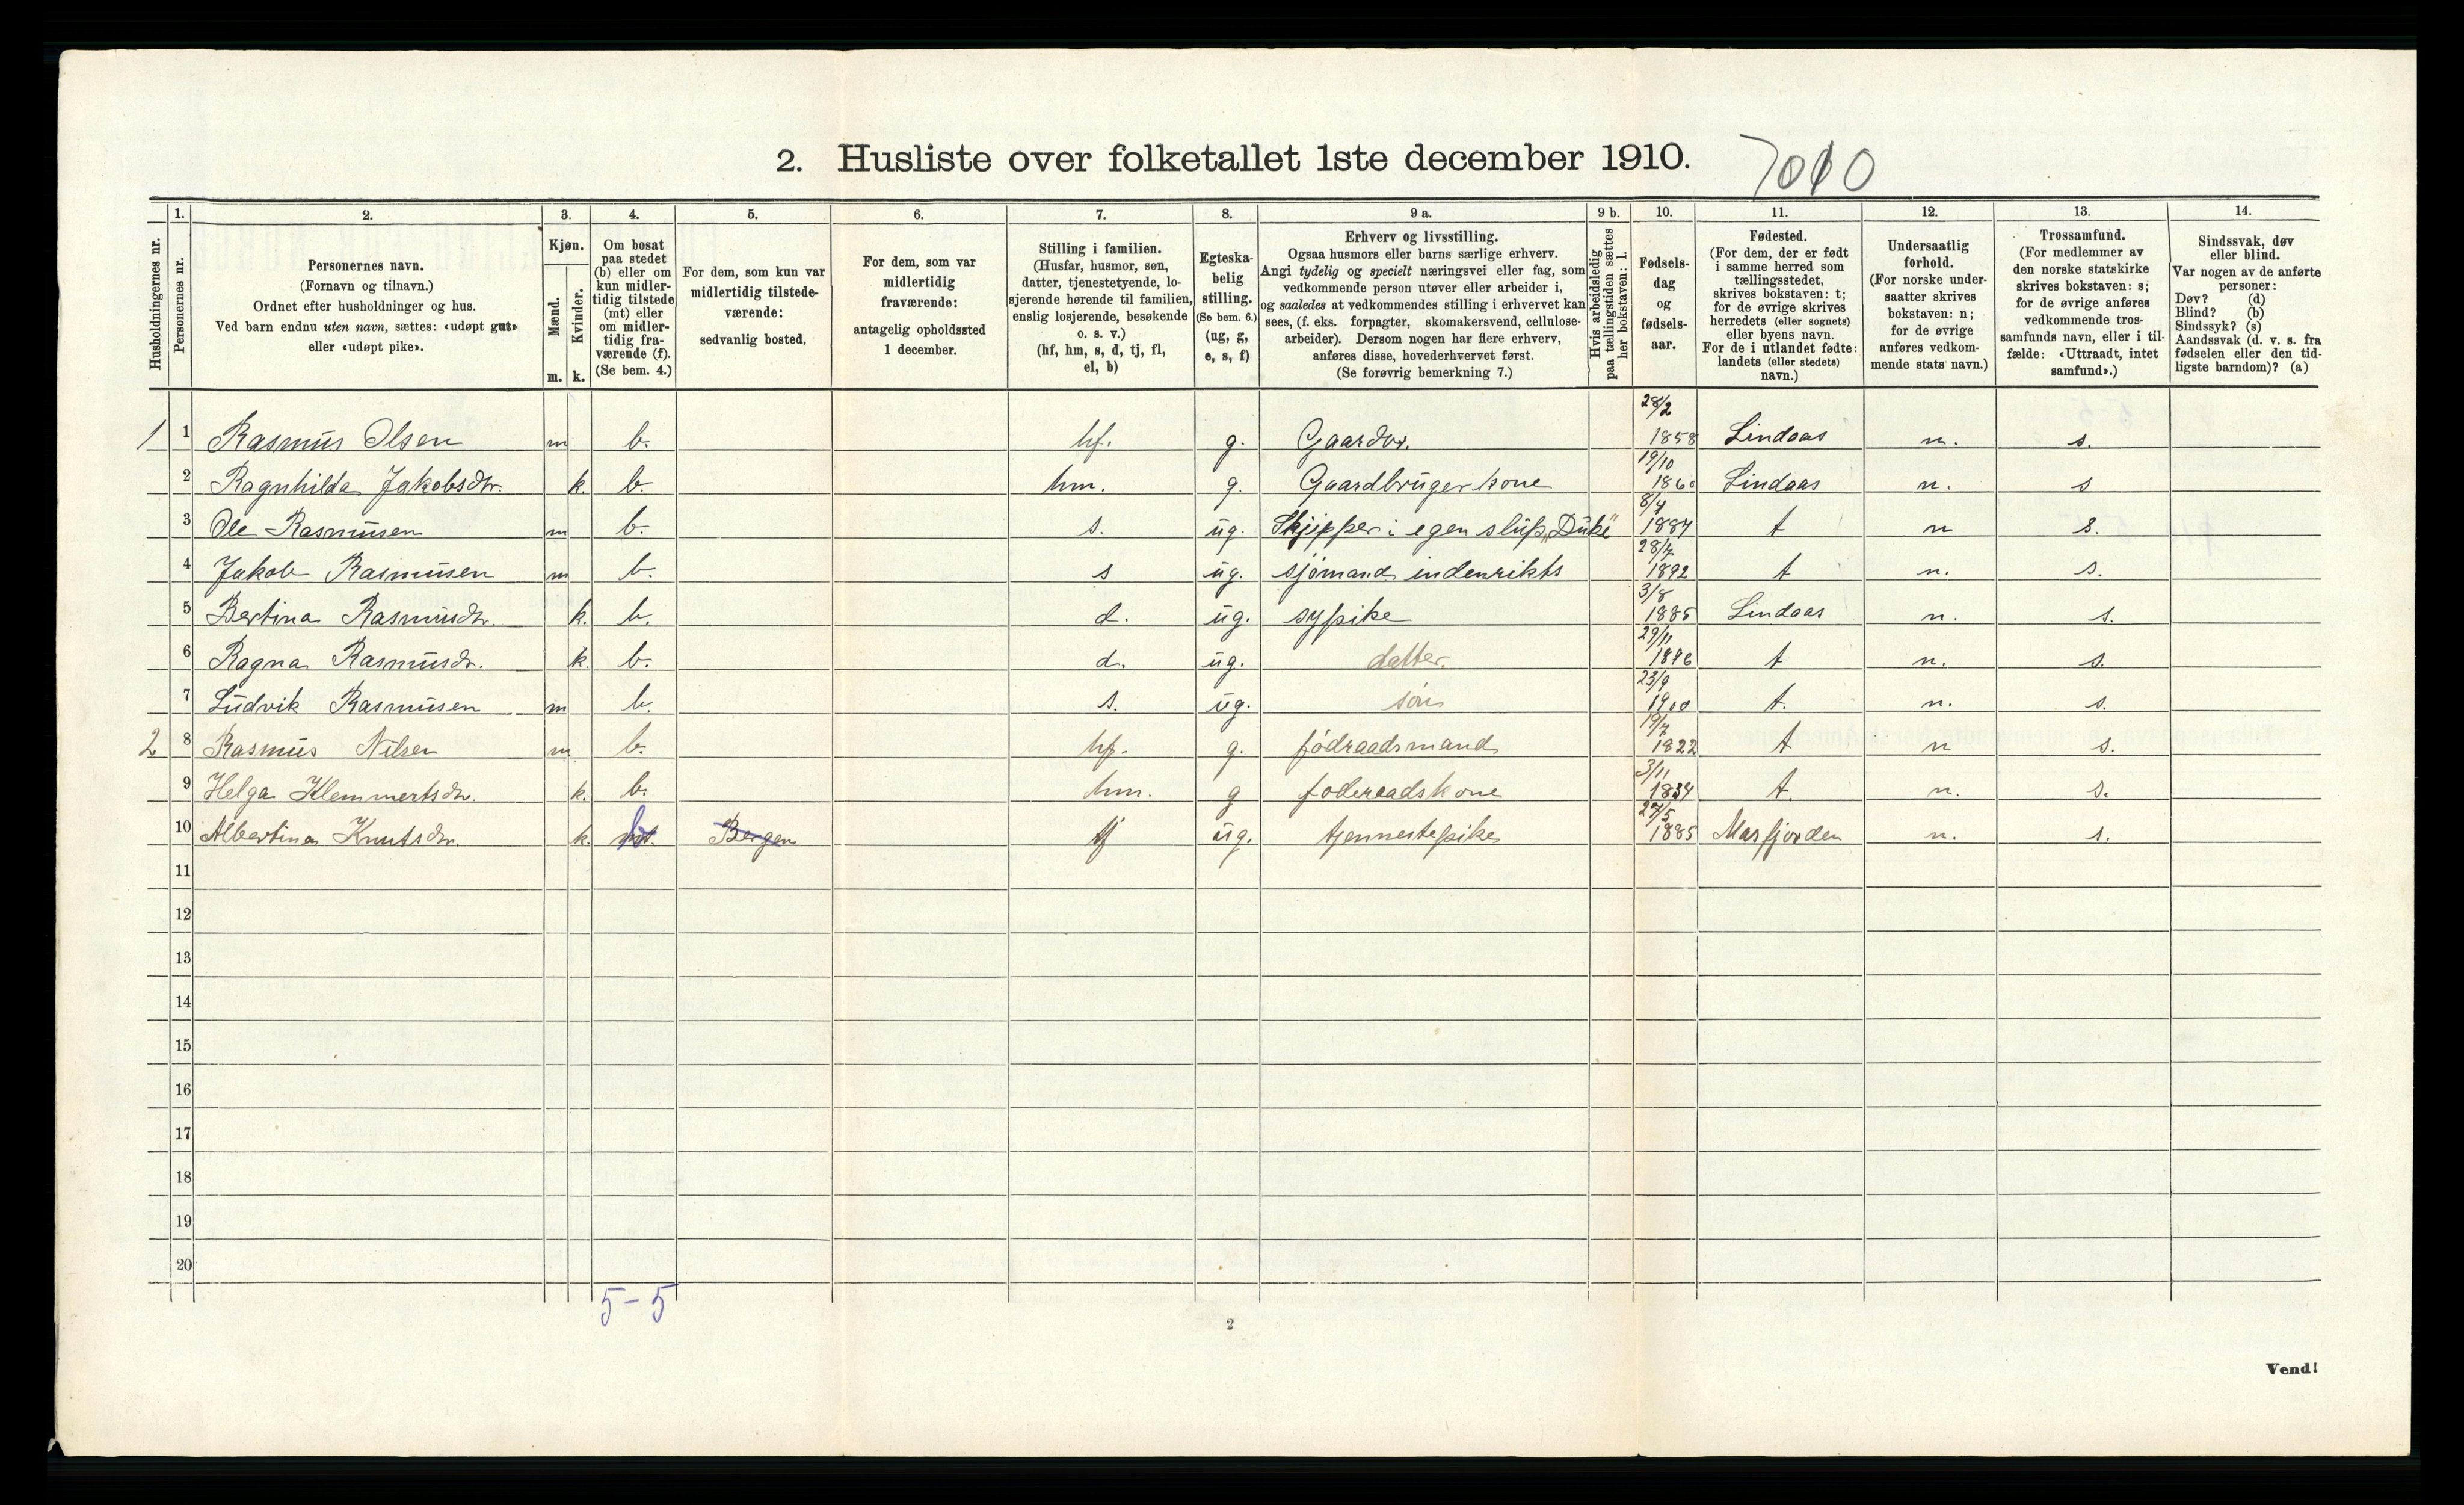 2. Husliste over folketallet 1ste december 1910.
Husholdningernes nr.
1. Personernes nr.
2. Personernes navn.
(Fornavn og tilnavn.)
Ordnet efter husholdninger og hus.
Ved barn endnu uten navn, sættes: «udøpt gut»
eller «udøpt pike».
3. Kjøn.
Mænd. m.
Kvinder. k.
4. Om bosat
paa stedet
(b) eller om
kun midler-
tidig tilstede
(mt) eller
om midler-
tidig fra-
værende (f).
(Se bem. 4.)
5. For dem, som kun var
midlertidig tilstede-
værende:
sedvanlig bosted.
6. For dem, som var
midlertidig
fraværende:
antagelig opholdssted
1 december.
7. Stilling i familien.
(Husfar, husmor, søn,
datter, tjenestetyende, lo-
sjerende hørende til familien,
enslig losjerende, besøkende
o. s. v.)
(hf, hm, s, d, tj, fl,
el, b)
8. Egteska-
belig
stilling.
(Se bem. 6.)
(ug, g,
e, s, f)
9 a. Erhverv og livsstilling.
Ogsaa husmors eller barns særlige erhverv.
Angi tydelig og specielt næringsvei eller fag, som
vedkommende person utøver eller arbeider i,
og saaledes at vedkommendes stilling i erhvervet kan
sees, (f. eks. forpagter, skomakersvend, cellulose-
arbeider). Dersom nogen har flere erhverv,
anføres disse, hovederhvervet først.
(Se forøvrig bemerkning 7.)
9 b. Hvis arbeidsledig
paa tællingstiden sættes
her bokstaven: l.
10. Fødsels-
dag
og
fødsels-
aar.
11. Fødested.
(For dem, der er født
i samme herred som
tællingsstedet,
skrives bokstaven: t;
for de øvrige skrives
herredets (eller sognets)
eller byens navn.
For de i utlandet fødte:
landets (eller stedets)
navn.)
12. Undersaatlig
forhold.
(For norske under-
saatter skrives
bokstaven: n;
for de øvrige
anføres vedkom-
mende stats navn.)
13. Trossamfund.
(For medlemmer av
den norske statskirke
skrives bokstaven: s;
for de øvrige anføres
vedkommende tros-
samfunds navn, eller i til-
fælde: «Uttraadt, intet
samfund».)
14. Sindssvak, døv
eller blind.
Var nogen av de anførte
personer:
Døv? (d)
Blind? (b)
Sindssyk? (s)
Aandssvak (d. v. s. fra
fødselen eller den tid-
ligste barndom)? (a)
1 1 Rasmus Olsen m b. hf. g. Gaardbr. 28/2 1858 Lindaas n. s.
2 Ragnhilda Jakobsdtr. k. b. hm. g. Gaardbrugerkone 19/10 1860 Lindaas n. s
3 Ole Rasmusen m b. s. ug. Skjipper i egen slup "Duke" 8/4 1884 t n s.
4 Jakob Rasmusen m b. s ug. sjømand indenrikts 28/7 1892 t n. s.
5 Bertina Rasmusdtr. k. b. d. ug. sypike 3/8 1885 Lindaas n. s.
6 Ragna Rasmusdr. k. b. d. ug. datter. 29/11 1896 t n. s.
7 Ludvik Rasmusen m b. s. ug. søn 23/9 1900 t. n. s.
2 8 Rasmus Nilsen m b. hf. g. födraadsmand 19/7 1822 t n s.
9 Helga Klemmertsdtr. k. b. hm. g foderaadskone 3/11 1834 t. n. s.
10 Albertina Knutsdtr. k. Bergen tj ug. tjennestepike 27/5 1885 Masfjorden n. s.
11
12
13
14
15
16
17
18
19
20
5-5
2
Vend!